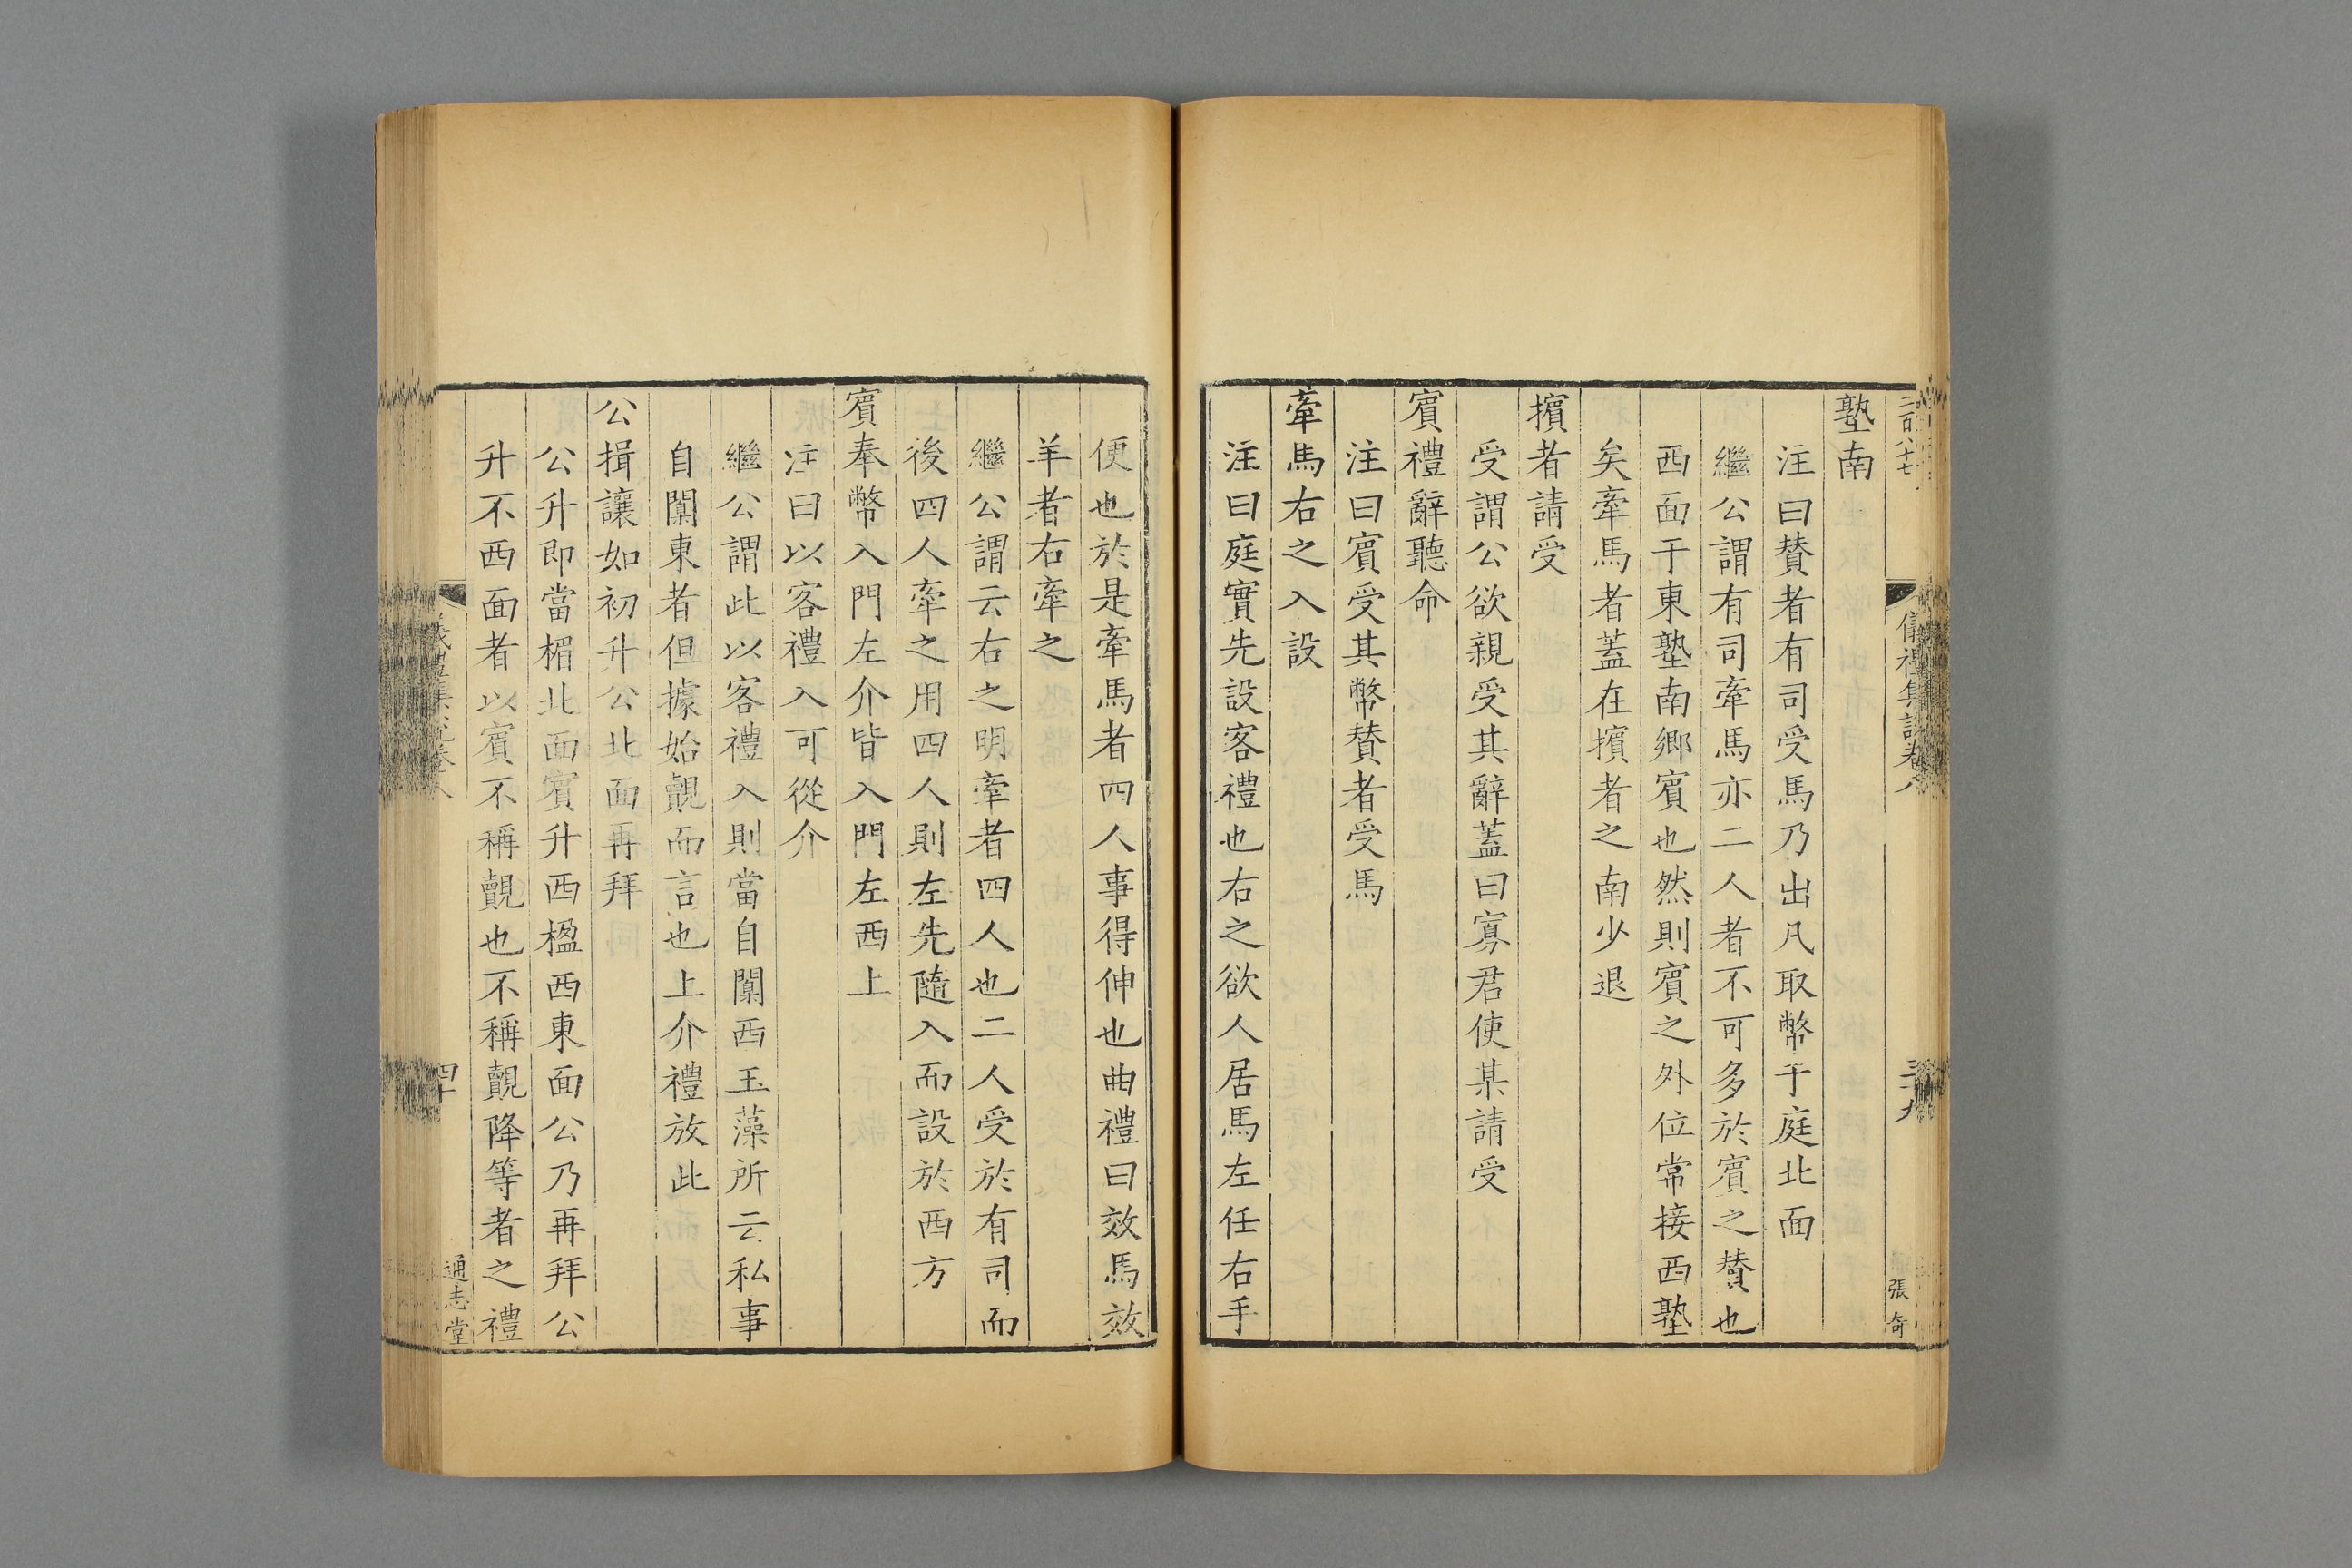 二百八十七
儀禮集說卷八
三十九
張奇
塾南
注曰賛者有司受馬乃出凡取幣于庭北面
繼公謂有司牽馬亦二人者不可多於賓之賛也
西面于東塾南鄉賓也然則賓之外位常接西塾
矣牽馬者蓋在擯者之南少退
擯者請受
受謂公欲親受其辭蓋曰寡君使某請受
賓禮辭聽命
注曰賓受其幣賛者受馬
牽馬右之入設
注曰庭實先設客禮也右之欲人居馬左任右手
便也於是牽馬者四人事得伸也曲禮曰效馬效
羊者右牽之
繼公謂云右之明牽者四人也二人受於有司而
後四人牽之用四人則左先隨入而設於西方
賓奉幣入門左介皆入門左西上
注曰以客禮入可從介
繼公謂此以客禮入則當自闑西玉藻所云私事
自闑東者但據始覿而言也上介禮放此
公揖讓如初升公北面再拜
公升即當楣北面賓升西楹西東面公乃再拜公
升不西面者以賓不稱覿也不稱覿降等者之禮
儀禮集說卷八
四十
通志堂